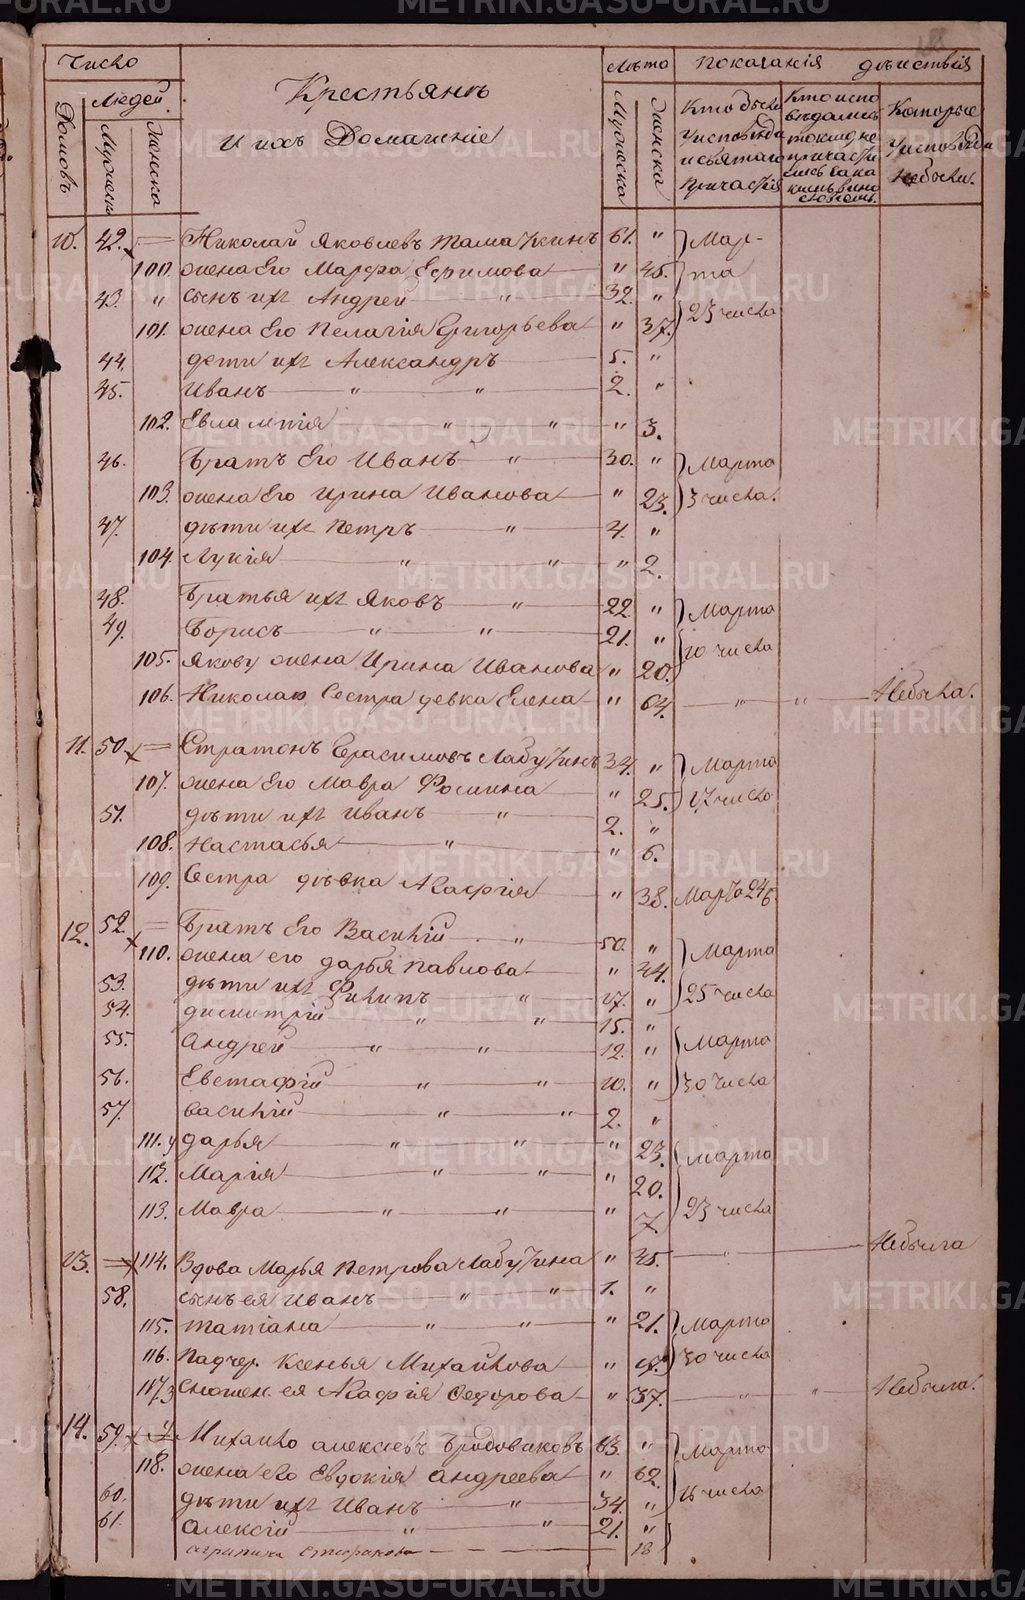 Число Лѣта показанiя дѣиствiя
Людей
Домовъ Мужеска Женска
Крестьянъ
И ихъ Домашнiе
Мужеска Женска
Кто были у исповѣди и святаго причастiя
Кто исповѣдались токмо не причастились
Которые у исповѣди небыли.
10. 42. Николай Яковлевъ 61. " Мар-
100. жена Его Марфа Ефимова " 45. та
43. " сынъ ихъ Андрей " 32. " 23 числа
101. жена Его Пелагiя Григорьева " 37.
44. дети ихъ Александръ 5. "
45. Иванъ " " 2. "
102. Евлампiя " " " 3.
46. Братъ Его Иванъ " 30. " Марта
103. жена Его Ирина Иванова " 23. 3 числа.
47. дѣти ихъ Петръ " 4. "
104. Лукiя " " " 2.
48. Братья ихъ Яковъ " 22 " Марта
49. Борисъ " " 21. " 10 числа
105. Якову жена Ирина Иванова " 20.
106. Николаю Сестра девка Елена " 64. " " Небыла.
11. 50. Стратонъ Герасимовъ Лабутинъ 34. " Марта
107. жена Его Мавра Фомина " 25. 17 число
51. дѣти ихъ Иванъ " 2. "
108. Настасья " " 6.
109. Сестра дѣвка Агафiя " 38. Марта 24
12. 52. Братъ Его Василiй " 50. " Марта
110. жена его дарья павлова " 44. 25 числа
53. дѣти ихъ Филипъ " 17. "
54. димитрiй " " 15. "
55. Андрей " " 12. " Марта
56. Евстафiй " " 10. " 30 числа
57. василiй " " 2. "
111. дарья " " " 23. Марта
112. Марiя " " " 20.
113. Мавра " " " 7. 23 числа
13. 114. Вдова Марья Петрова Лабутина " 45. " Небыла
58. сынъ ея Иванъ " " 1. "
115. татiана " " " 21. Марта
116. Падчер. Ксенья Михайлова " 30 числа
117. ея Агафiя Федорова " 37. " " Небыла.
14. 59. Михаило алексѣевъ Бродовиковъ 63. " Марта
118. жена его Евдокiя Андреева " 62. 16 числа
60. дѣти ихъ Иванъ " 34. "
61. Алексiй " " 21. "
агрипина 18
METRIKI.GASO-URAL.RU